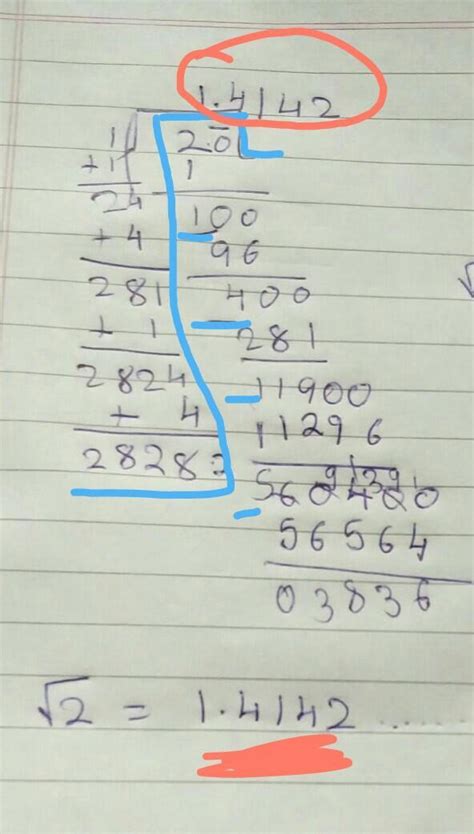 1.4142
1 2.0
+1 1
24 100
+ 4 96
281 400
+ 1 281
2824 11900
+ 4 11296
28282 60400
56564
03836
√2 = 1.4142 ......